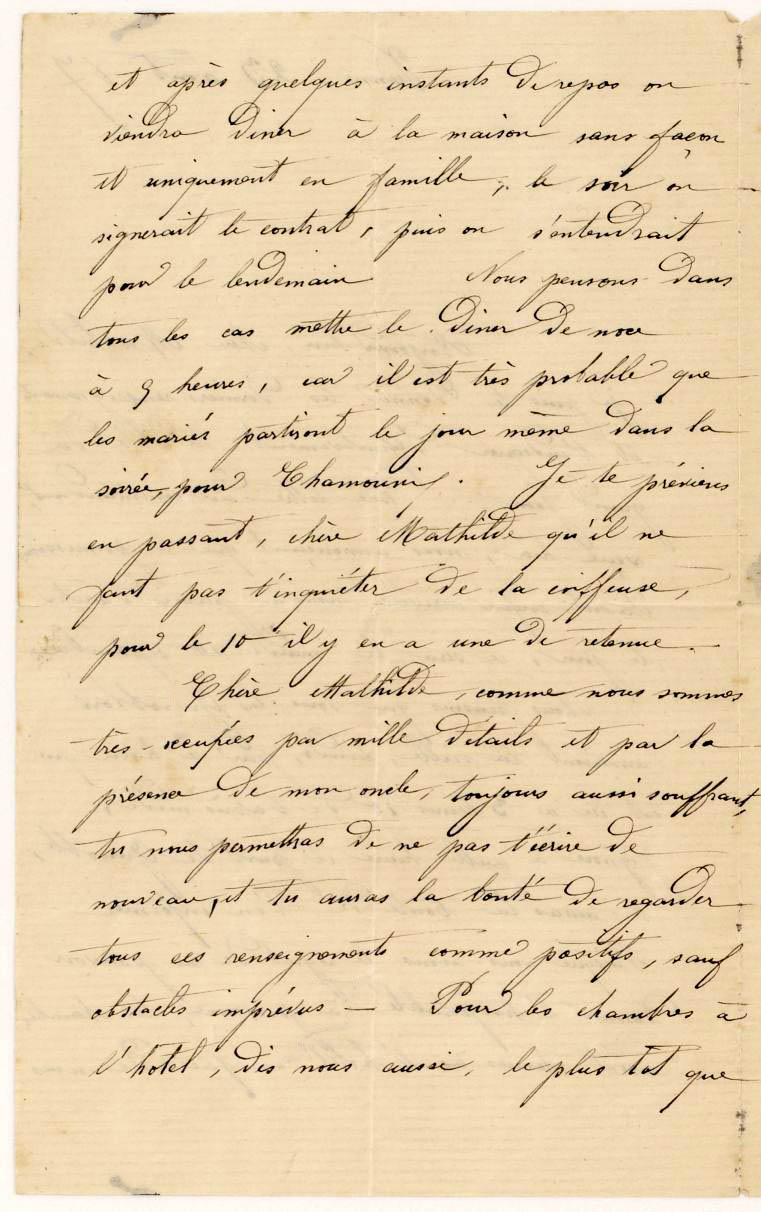 et après quelques instants de repos on
viendra diner à la maison sans façon
et uniquement en famille ; le soir on
signerait le contrat, puis on s'entendrait
pour le lendemain Nous pensons dans
tous les cas mettre le diner de noce
à 5 heures, car il est très probable que
les mariés partiront le jour même dans la
soirée, pour Chamounix. Je te préviens
en passant, chère Mathilde qu'il ne
faut pas t'inquiéter de la coiffeuse,
pour le 10 il y en a une de retenue.
Chère Mathilde, comme nous sommes
très-occupées par mille détails et par la
présence de mon oncle, toujours aussi souffrant,
tu nous permettras de ne pas t'écrire de
nouveau, et tu auras la bonté de regarder
tous ces renseignements comme positifs, sauf
obstacles imprévus — Pour les chambres à
l'hotel, dis nous aussi, le plus tôt que